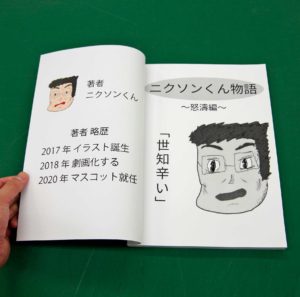 著者
ニクソンくん
著者 略歴
2017 年 イラスト誕生
2018 年 劇画化する
2020 年 マスコット就任
ニクソンくん物語
~怒濤編~
「世知辛い」